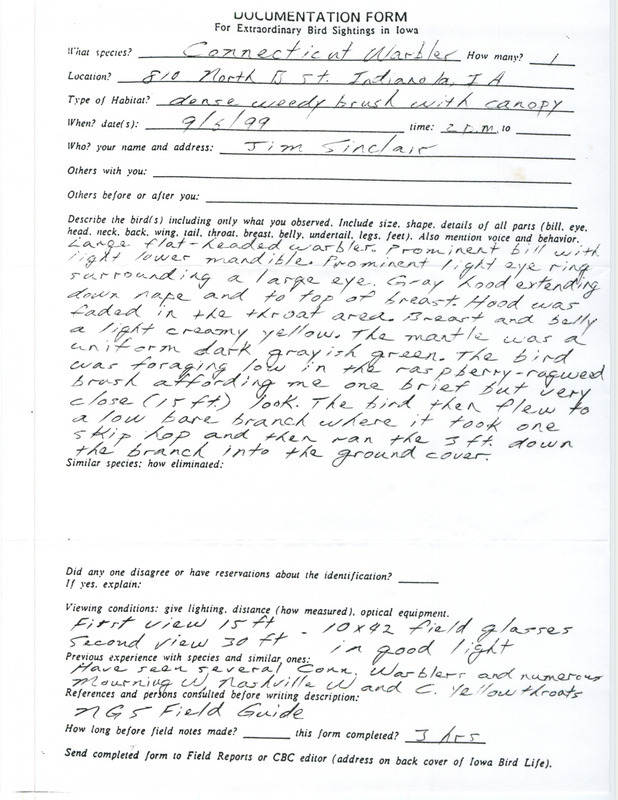 DOCUMENTATION FORM
For Extraordinary Bird Sightings in Iowa
What species? Connecticut Warbler How many? 1
Location? 810 North B St. Indianola, IA
Type of Habitat? dense weedy brush with canopy
When? date(s): 9/5/99 time: 2 P.M. to
Who? your name and address: Jim Sinclair
Others with you:
Others before or after you:
Describe the bird(s) including only what you observed. Include size, shape, details of all parts (bill, eye,
head, neck, back, wing, tail, throat, breast, belly, undertail, legs, feet). Also mention voice and behavior.
Large flat-headed warbler. Prominent bill with
light lower mandible. Prominent light eye ring
surrounding a large eye. Gray hood extending
down nape and to top of breast. Hood was
faded in the throat area. Breast and belly
a light creamy yellow. The mantle was a
uniform dark grayish green. The bird
was foraging low in the raspberry-ragweed
brush affording me one brief but very
close (15 ft) look. The bird then flew to
a low bare branch where it took one
skip hop and then ran the 3 ft. down
the branch into the ground cover.
Similar species; how eliminated:
Did any one disagree or have reservations about the identification?
If yes, explain:
Viewing conditions: give lighting, distance (how measured), optical equipment.
First view 15 ft - 10x42 field glasses
Second view 30 ft in good light
Previous experience with species and similar ones:
Have seen several Conn. Warblers and numerous
Mourning W, Nashville W and C. Yellowthroats
References and persons consulted before writing description:
NGS Field Guide
How long before field notes made? this form completed? 3 hrs
Send completed form to Field Reports or CBC editor (address on back cover of Iowa Bird Life).